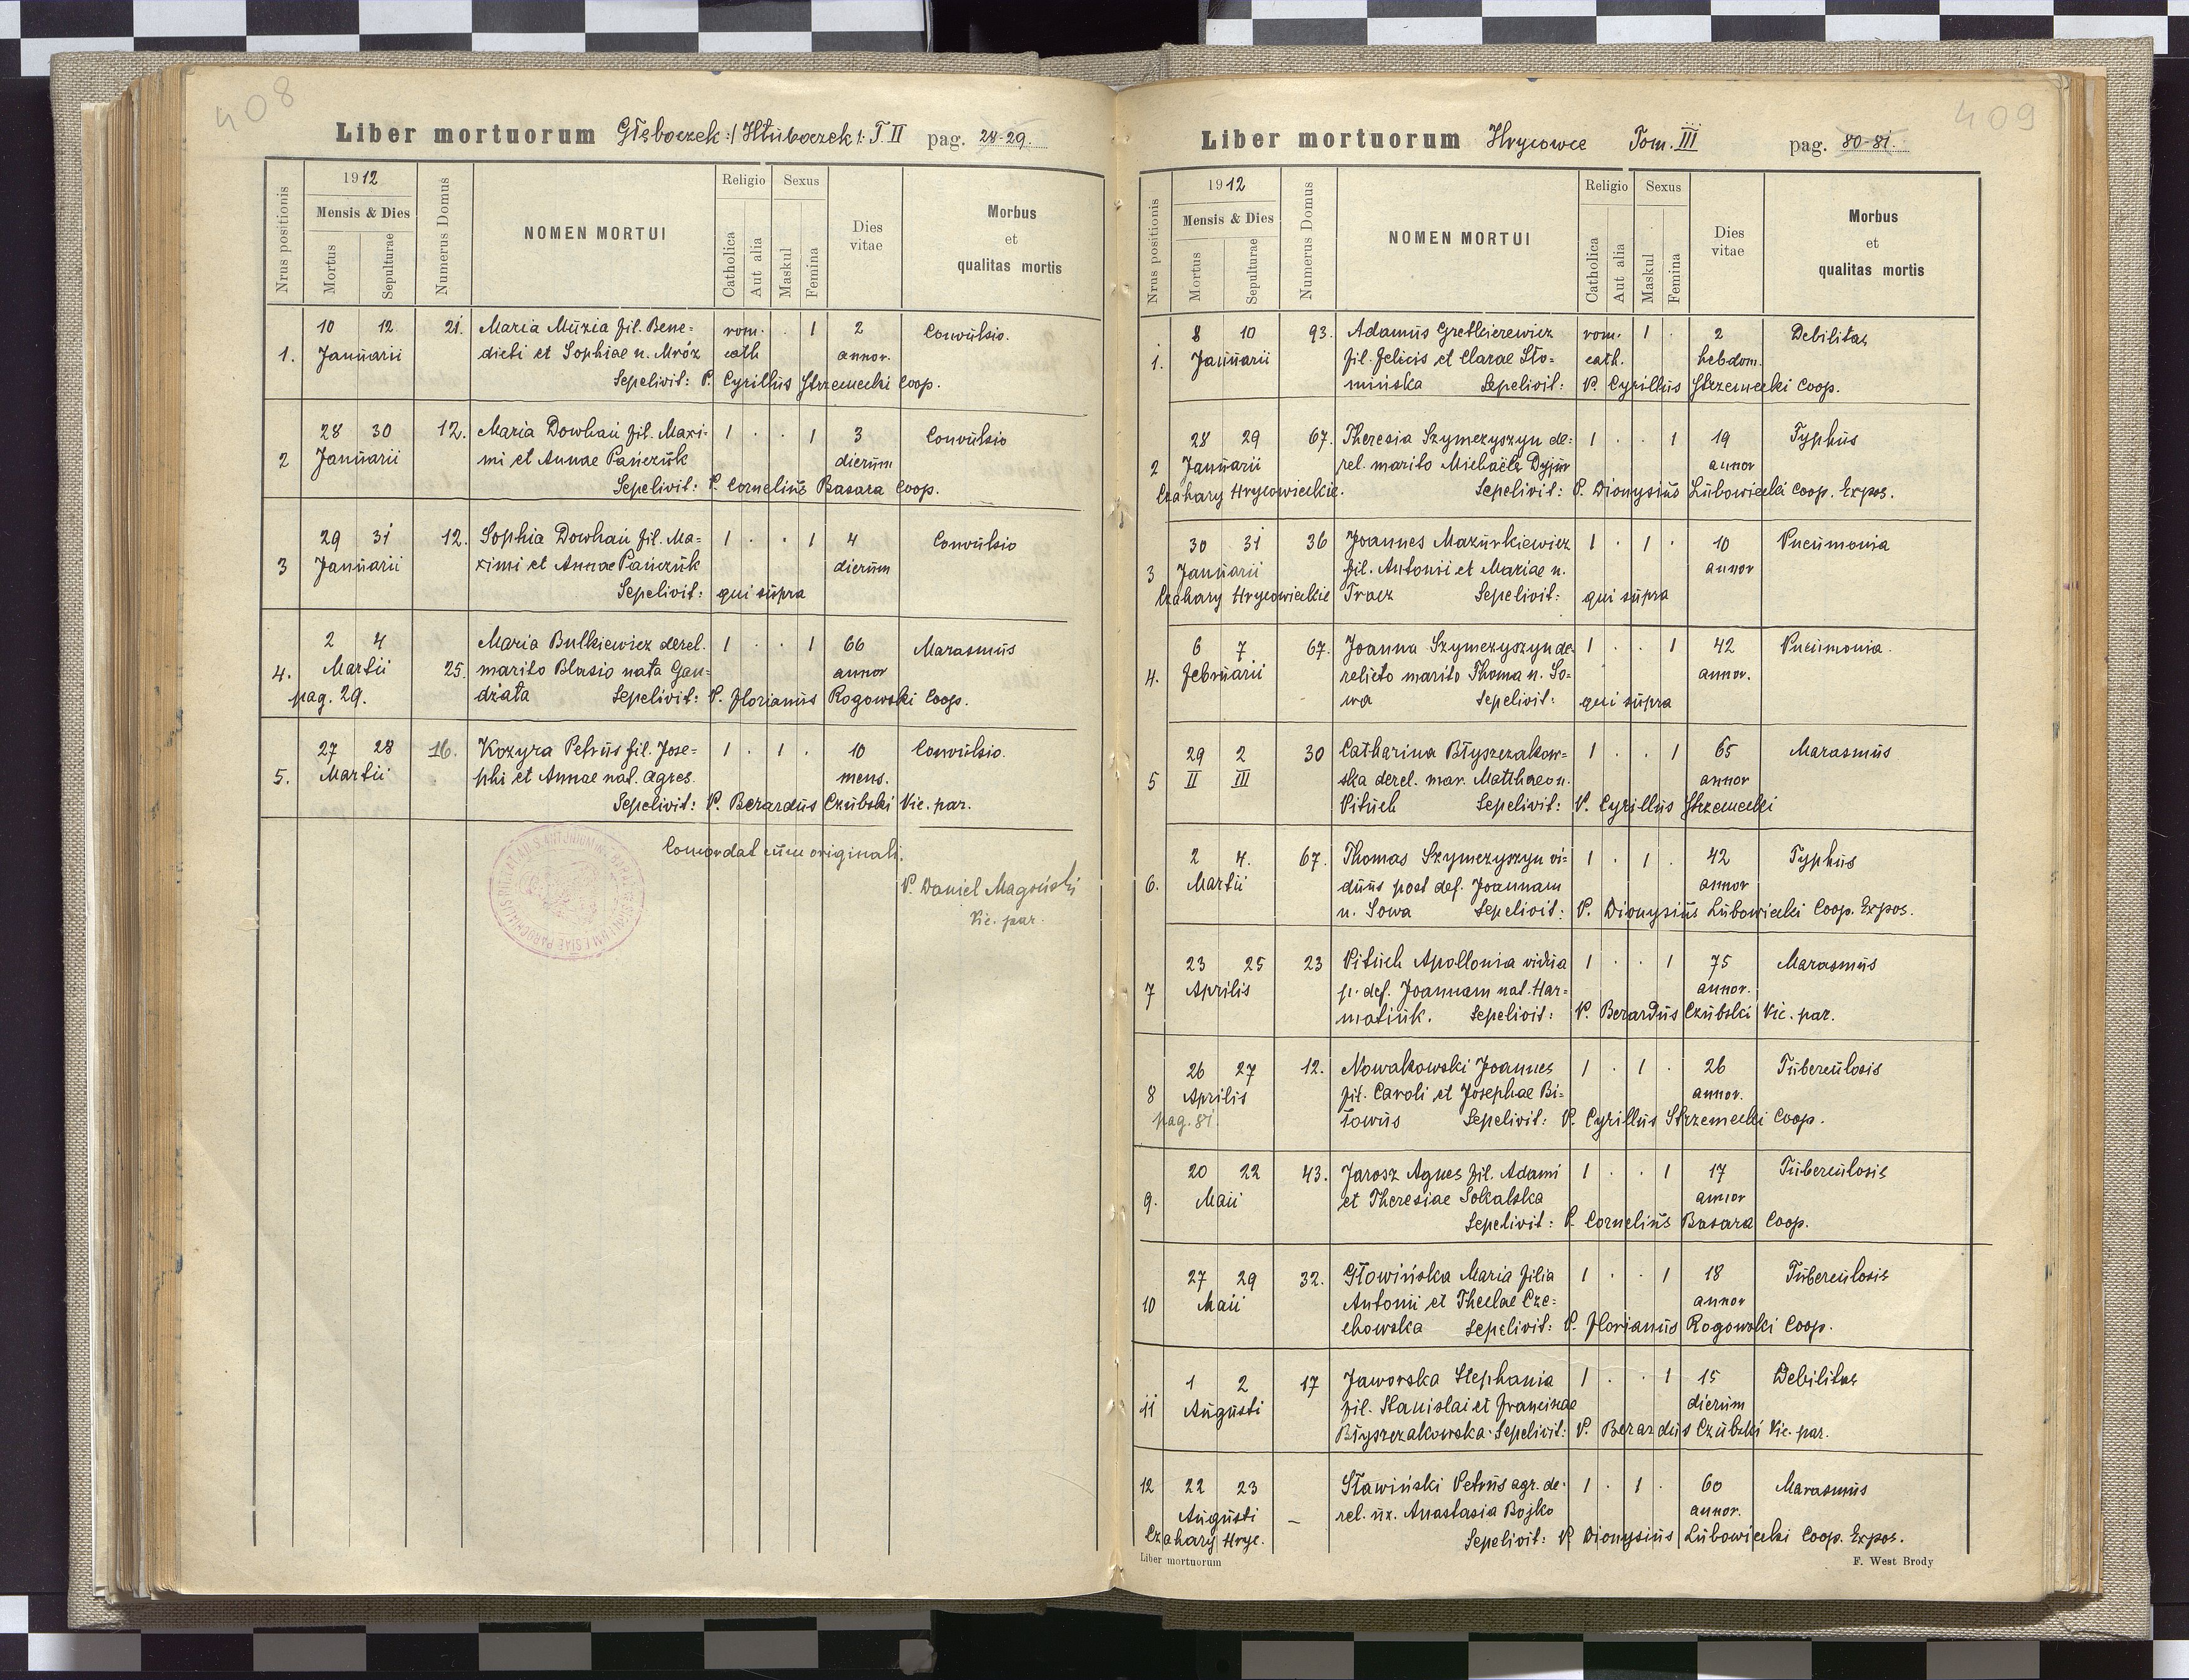 408
Liber mortuorum Głęboczek :/Hłuboczek/: T. II pag. 28-29.
Nrus positionis
1912
Mensis & Dies
Mortus
Sepulturae
Numerus Domus
NOMEN MORTUI
Religio
Catholica
Aut alia
Sexus
Maskul
Femina
Dies vitae
Morbus
et
qualitas mortis
10 12 21. Maria Muzia fil. Bene- rom. . 1 2 Convulsio.
1. Januarii dicti et Sophiae n. Mróz cath annor.
Sepelivit: P. Cyrillus Strzemecki Coop.
28 30 12. Maria Dowhań fil. Maxi- 1 . . 1 3 Convulsio
2 Januarii mi et Annae Pańczuk dierum
Sepelivit: P. Cornelius Basara Coop.
29 31 12. Sophia Dowhań fil. Ma- 1 . . 1 4 Convulsio
3 Januarii ximi et Annae Pańczuk dierum
Sepelivit: qui supra
2 4 Maria Bulkiewicz derel. 1 . . 1 66 Marasmus
4. Martii 25. marito Blasio nata Gan- annor
pag. 29. dziata Sepelivit: P. Florianus Rogowski Coop.
27 28 16. Kozyra Petrus fil. Jose- 1 . 1 . 10 Convulsio.
5. Martii phi et Annae nat. Agres mens.
Sepelivit: P. Berardus Czubski Vic. par.
Concordat cum originali.
P. Daniel Magoński
Vic. par.
409
Liber mortuorum Hrycowce Tom. III pag. 80-81.
Nrus positionis
1912
Mensis & Dies
Mortus
Sepulturae
Numerus Domus
NOMEN MORTUI
Religio
Catholica
Aut alia
Sexus
Maskul
Femina
Dies vitae
Morbus
et
qualitas mortis
8 10 93. Adamus Gretkierewicz rom. 1 . 2 Debilitas
1. Januarii fil. Felicis et Clarae Sło- cath. hebdom.
mińska Sepelivit: P. Cyrillus Strzemecki Coop.
28 29 67. Theresia Szymczyszyn de- 1 . . 1 19 Typhus
2 Januarii rel. marito Michaële Dyjur annor
Czahary Hrycowieckie. Sepelivit: P. Dionysius Lubowiecki Coop. Expos.
30 31 36 Joannes Mazurkiewicz 1 . 1 . 10 Pneumonia
3 Januarii fil. Antonii et Mariae n. annor
Czahary Hrycowieckie Tracz Sepelivit: qui supra
6 7 67. Joanna Szymczyszyn de- 1 . . 1 42 Pneumonia.
4. Februarii relicto marito Thoma n. So- annor.
wa Sepelivit: qui supra
29 2 30 Catharina Błyszczakow- 1 . . 1 65 Marasmus
5 II III ska derel. mar. Matthaeo n. annor
Pituch Sepelivit: P. Cyrillus Strzemecki
2 4. 67. Thomas Szymczyszyn vi- 1 . 1 . 42 Typhus
6. Martii duus post def. Joannam annor
n. Sowa Sepelivit: P. Dionysius Lubowiecki Coop. Expos.
23 25 23 Pituch Apollonia vidua 1 . . 1 75 Marasmus
7 Aprilis p. def. Joannam nat. Har- annor.
matiuk. Sepelivit: P. Berardus Czubski Vic. par.
26 27 12. Nowakowski Joannes 1 . 1 . 26 Tuberculosis
8 Aprilis fil. Caroli et Josephae Bi- annor.
pag. 81. łowus Sepelivit: P. Cyrillus Strzemecki Coop.
20 22 43. Jarosz Agnes fil. Adami 1 . . 1 17 Tuberculosis
9. Maii et Theresiae Sokalska annor
Sepelivit: P. Cornelius Basara Coop.
27 29 32. Głowińska Maria filia 1 . . 1 18 Tuberculosis
10 Maii Antonii et Theclae Cze- annor
chowska Sepelivit: P. Florianus Rogowski Coop.
1 2 17 Jaworska Stephania 1 . . 1 15 Debilitas
11 Augusti fil. Stanislai et Francinae dierum
Błyszczakowska Sepelivit: P. Berardus Czubski Vic. par.
12 22 23 Sławiński Petrus agr. de- 1 . 1 . 60 Marasmus
Augusti – rel. ux. Anastasia Bojko annor.
Czahary Hryc. Sepelivit: P. Dionysius Lubowiecki Coop. Expos.
Liber mortuorum
F. West Brody